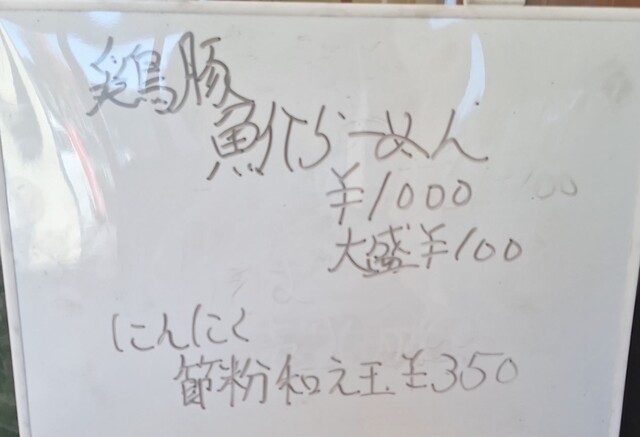 鶏豚
魚介らーめん
¥1000
大盛¥100
にんにく
節粉和え玉¥350